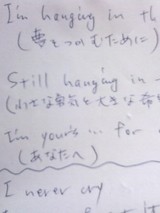 I'm hanging in th
(夢をつかむために)
Still hanging in
(小さな勇気を大きな希
I'm yours in for
(あなたへ)
I never cry